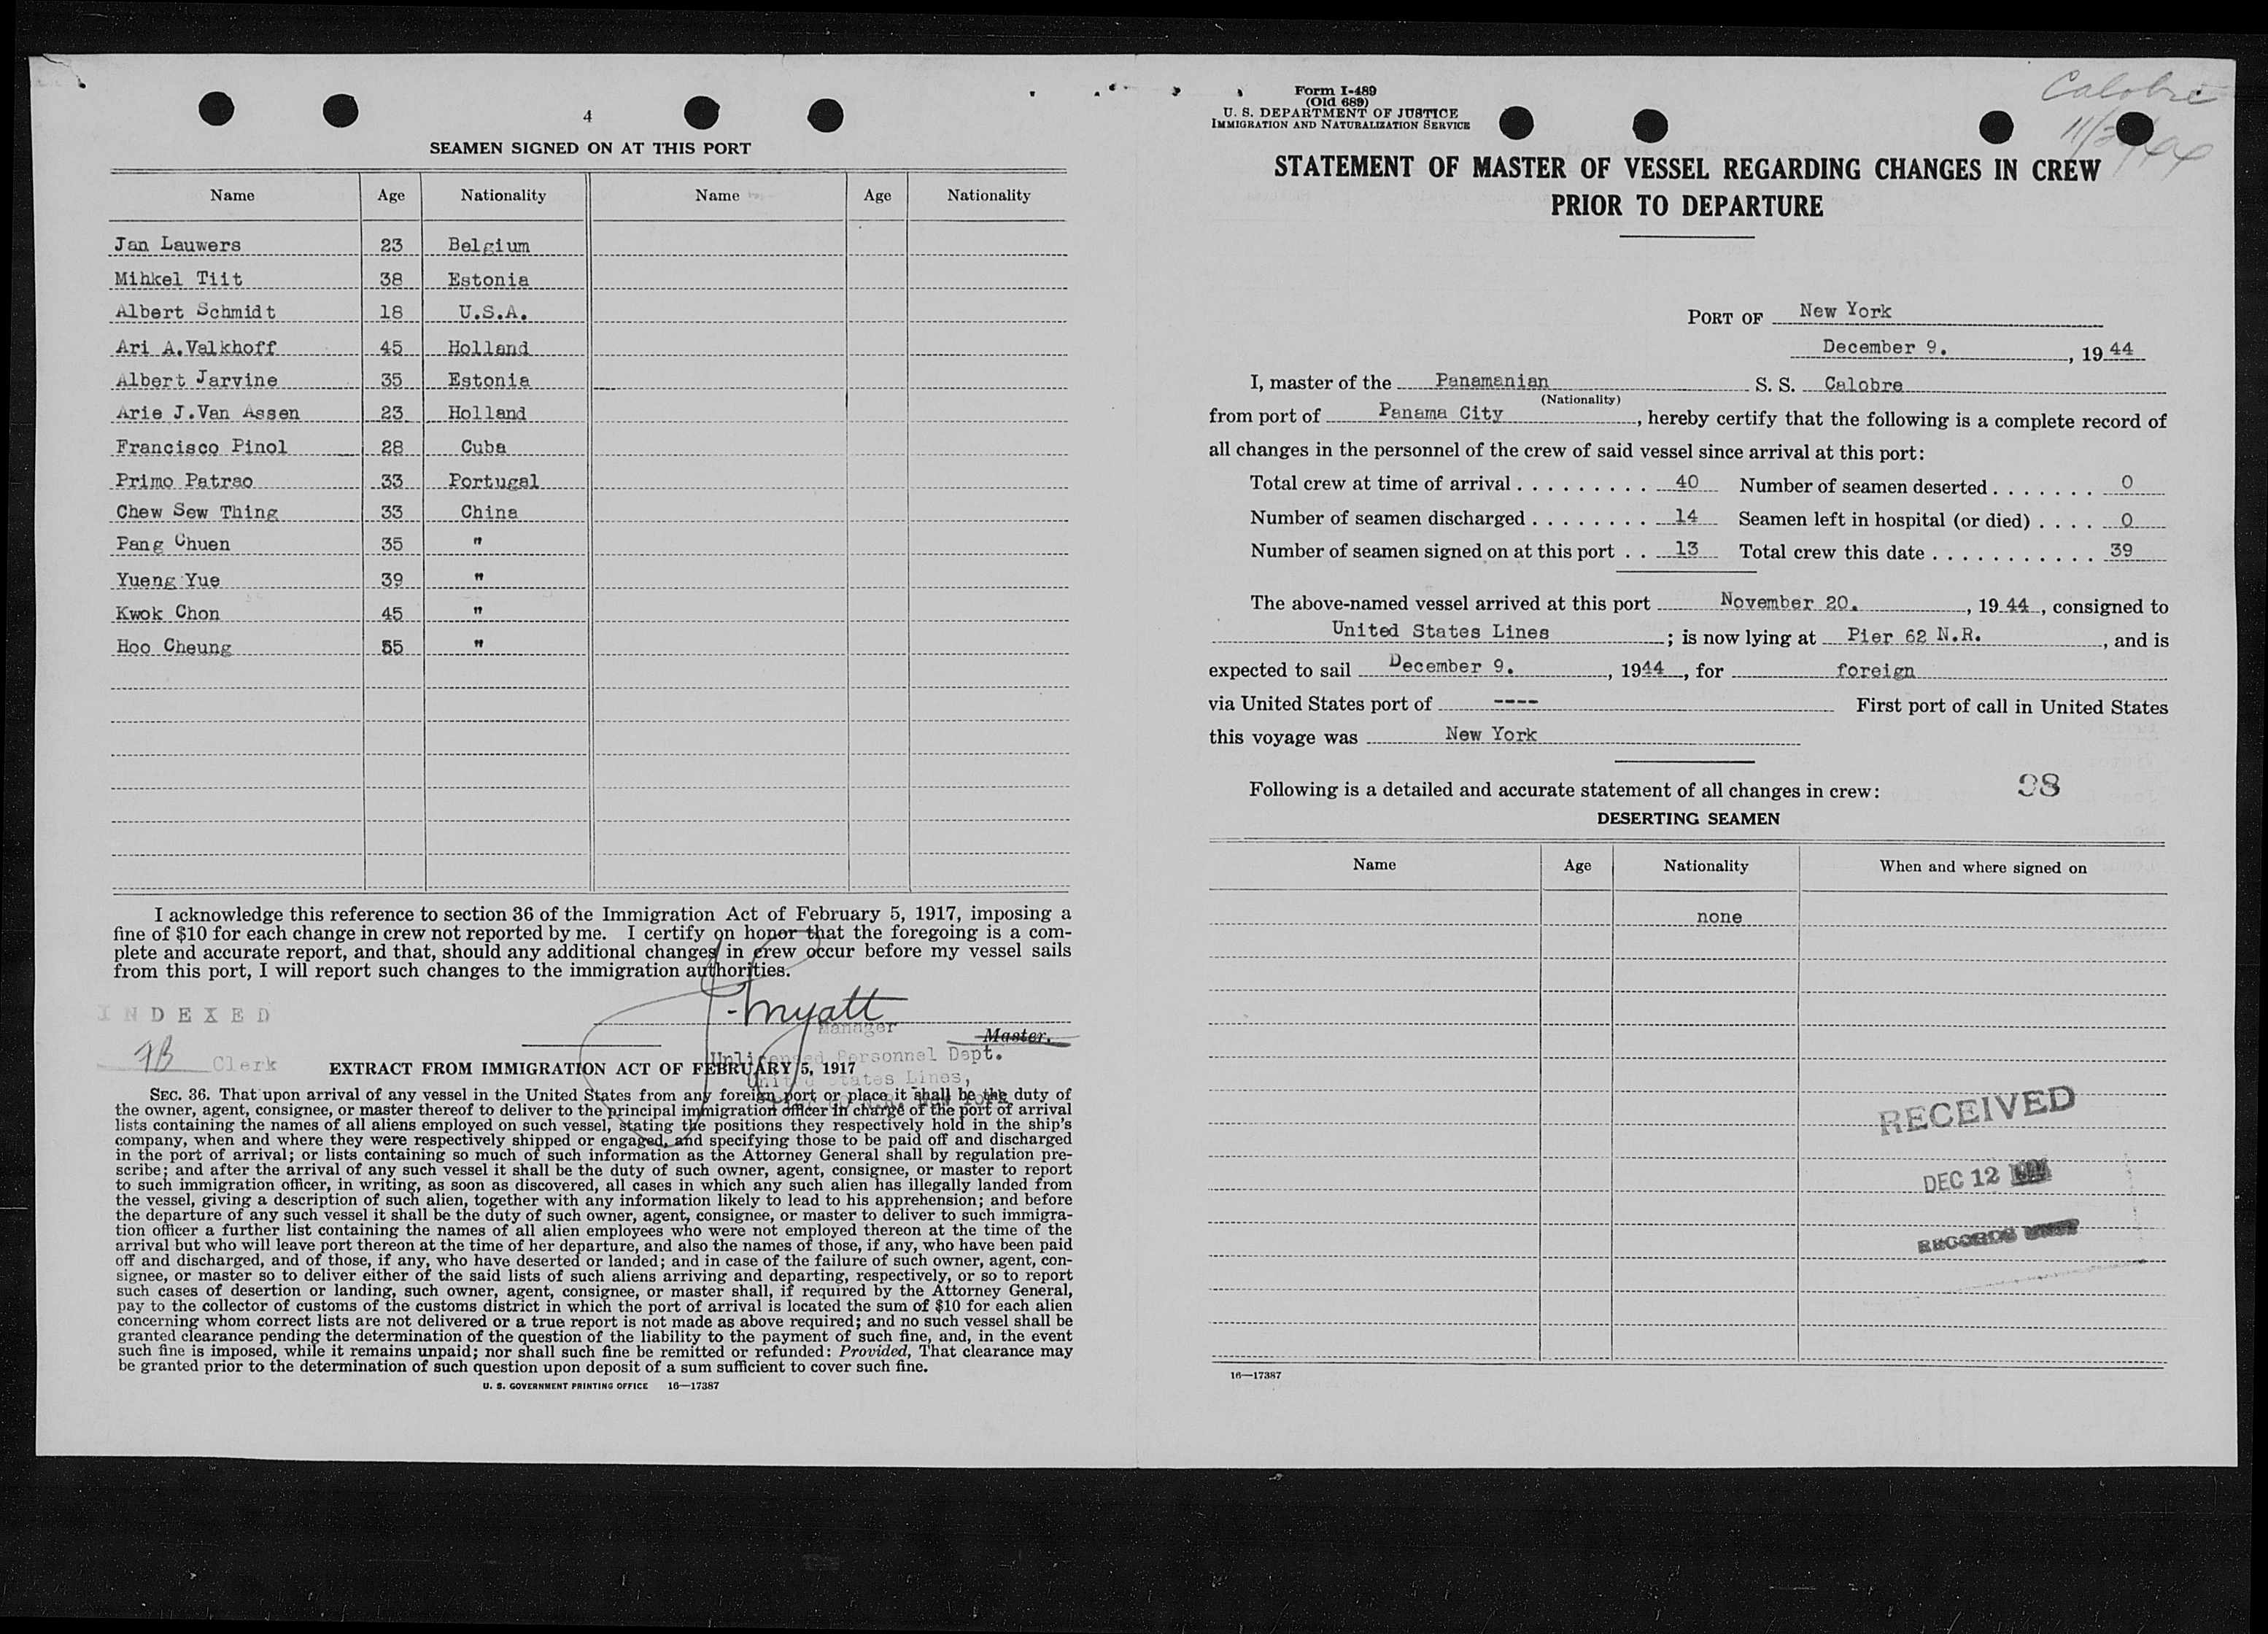 4
SEAMEN SIGNED ON AT THIS PORT
Name Age Nationality Name Age Nationality
Jan Lauwers 23 Belgium
Mihkel Tiit 38 Estonia
Albert Schmidt 18 U.S.A.
Ari A.Valkhoff 45 Holland
Albert Jarvine 35 Estonia
Arie J.Van Assen 23 Holland
Francisco Pinol 28 Cuba
Primo Patrao 33 Portugal
Chew Sew Thing 33 China
Pang Chuen 35 "
Yueng Yue 39 "
Kwok Chon 45 "
Hoo Cheung 55 "
I acknowledge this reference to section 36 of the Immigration Act of February 5, 1917, imposing a
fine of $10 for each change in crew not reported by me. I certify on honor that the foregoing is a com-
plete and accurate report, and that, should any additional changes in crew occur before my vessel sails
from this port, I will report such changes to the immigration authorities.
INDEXED
Myatt
Manager Master.
Clerk
Unlicensed Personnel Dept.
EXTRACT FROM IMMIGRATION ACT OF FEBRUARY 5, 1917
United States Lines,
SEC. 36. That upon arrival of any vessel in the United States from any foreign port or place it shall be the duty of
the owner, agent, consignee, or master thereof to deliver to the principal immigration officer in charge of the port of arrival
lists containing the names of all aliens employed on such vessel, stating the positions they respectively hold in the ship's
company, when and where they were respectively shipped or engaged, and specifying those to be paid off and discharged
in the port of arrival; or lists containing so much of such information as the Attorney General shall by regulation pre-
scribe; and after the arrival of any such vessel it shall be the duty of such owner, agent, consignee, or master to report
to such immigration officer, in writing, as soon as discovered, all cases in which any such alien has illegally landed from
the vessel, giving a description of such alien, together with any information likely to lead to his apprehension; and before
the departure of any such vessel it shall be the duty of such owner, agent, consignee, or master to deliver to such immigra-
tion officer a further list containing the names of all alien employees who were not employed thereon at the time of the
arrival but who will leave port thereon at the time of her departure, and also the names of those, if any, who have been paid
off and discharged, and of those, if any, who have deserted or landed; and in case of the failure of such owner, agent, con-
signee, or master so to deliver either of the said lists of such aliens arriving and departing, respectively, or so to report
such cases of desertion or landing, such owner, agent, consignee, or master shall, if required by the Attorney General,
pay to the collector of customs of the customs district in which the port of arrival is located the sum of $10 for each alien
concerning whom correct lists are not delivered or a true report is not made as above required; and no such vessel shall be
granted clearance pending the determination of the question of the liability to the payment of such fine, and, in the event
such fine is imposed, while it remains unpaid; nor shall such fine be remitted or refunded: Provided, That clearance may
be granted prior to the determination of such question upon deposit of a sum sufficient to cover such fine.
U. S. GOVERNMENT PRINTING OFFICE 16—17387
Form I-489
(Old 689)
U. S. DEPARTMENT OF JUSTICE
IMMIGRATION AND NATURALIZATION SERVICE
Calobre
STATEMENT OF MASTER OF VESSEL REGARDING CHANGES IN CREW
PRIOR TO DEPARTURE
PORT OF New York
December 9. , 1944
I, master of the Panamanian S. S. Calobre
(Nationality)
from port of Panama City , hereby certify that the following is a complete record of
all changes in the personnel of the crew of said vessel since arrival at this port:
Total crew at time of arrival . . . . . . . . . 40 Number of seamen deserted . . . . . . . 0
Number of seamen discharged . . . . . . . . 14 Seamen left in hospital (or died) . . . . 0
Number of seamen signed on at this port . . 13 Total crew this date . . . . . . . . . . . 39
The above-named vessel arrived at this port November 20. , 1944 , consigned to
United States Lines ; is now lying at Pier 62 N.R. , and is
expected to sail December 9. , 1944 , for foreign
via United States port of ---- First port of call in United States
this voyage was New York
Following is a detailed and accurate statement of all changes in crew: 98
DESERTING SEAMEN
Name Age Nationality When and where signed on
none
RECEIVED
DEC 12
RECORDS
16—17387